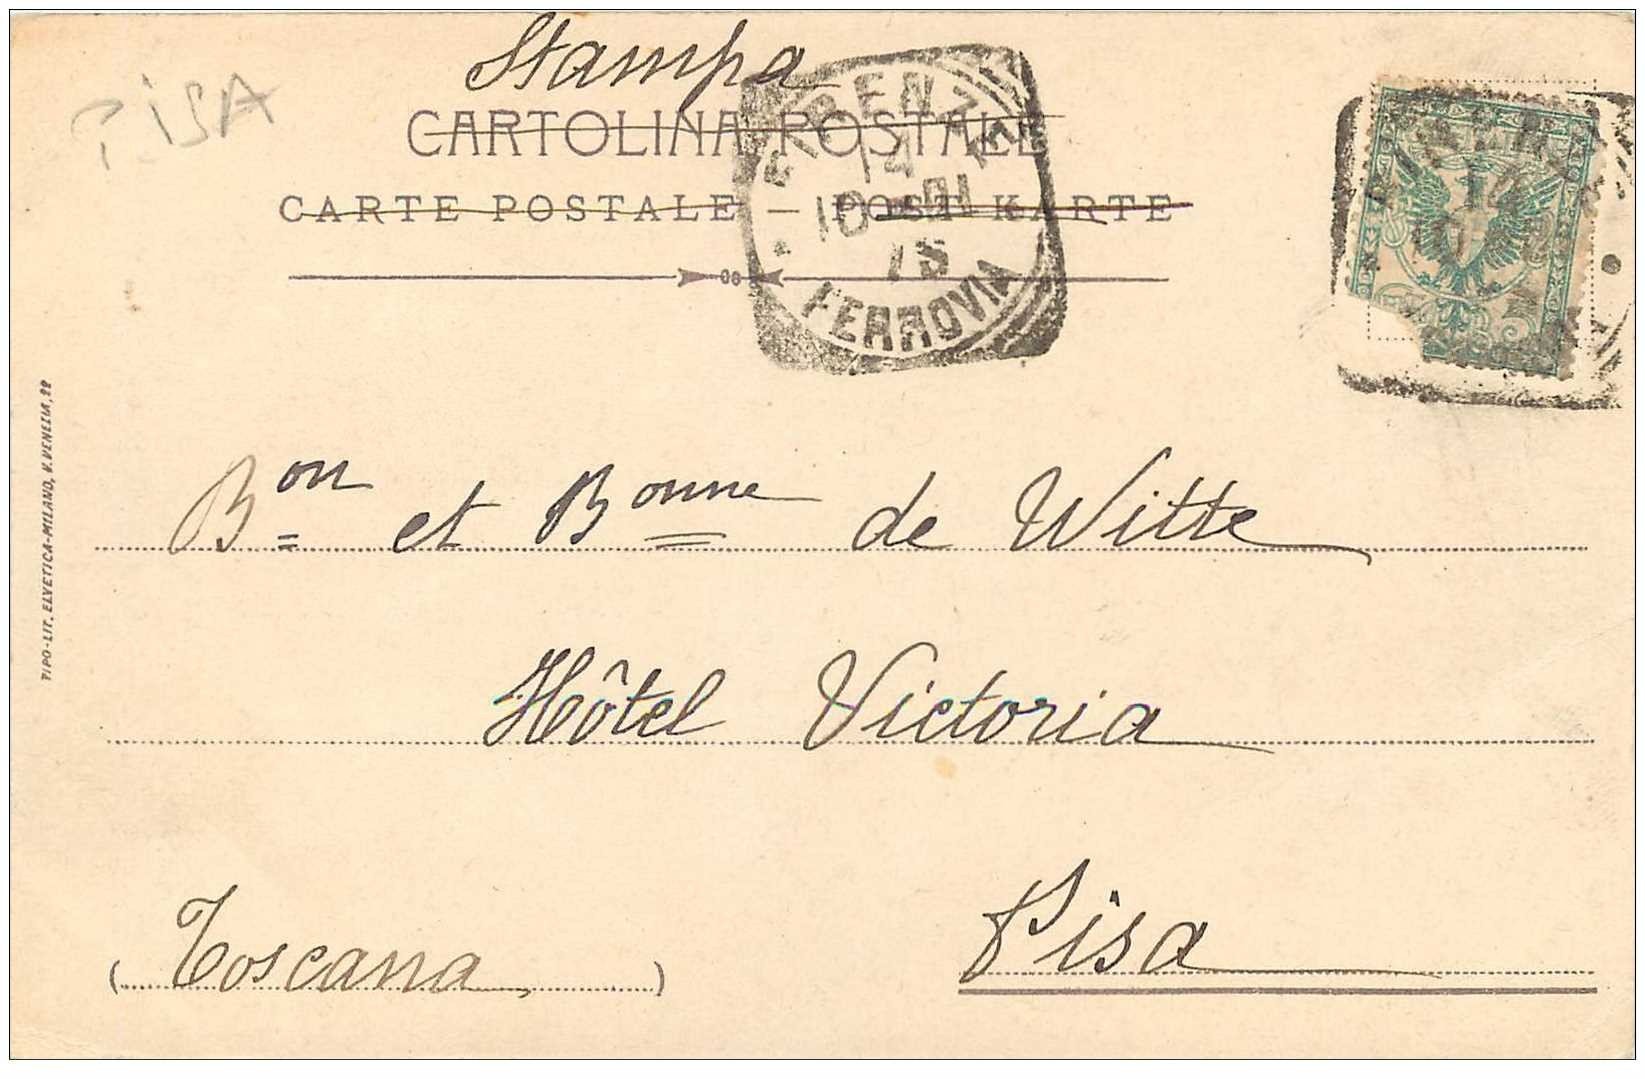 Stampa
PISA
CARTOLINA POSTALE
CARTE POSTALE — POST KARTE
FIRENZE
14
10-01
1S
FERROVIA
Bon et Bonne de Witte
Hôtel Victoria
Pisa
(Toscana)
TIPO-LIT. ELVETICA-MILANO, V. VENEZIA, 22